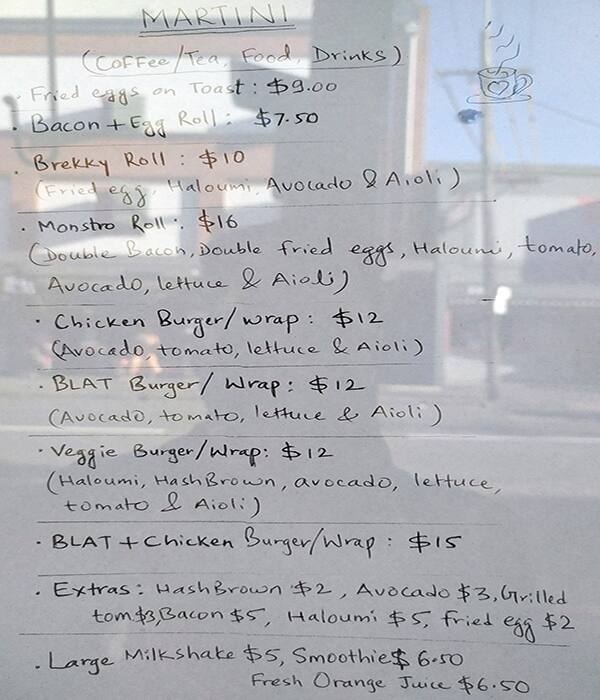 MARTINI
(Coffee/Tea, Food, Drinks)
· Fried eggs on Toast : $9.00
· Bacon + Egg Roll : $7.50
· Brekky Roll : $10
(Fried egg, Haloumi, Avocado & Aioli)
· Monstro Roll : $16
(Double Bacon, Double fried eggs, Haloumi, tomato,
Avocado, lettuce & Aioli)
· Chicken Burger/wrap : $12
(Avocado, tomato, lettuce & Aioli)
· BLAT Burger/Wrap : $12
(Avocado, tomato, lettuce & Aioli)
· Veggie Burger/Wrap : $12
(Haloumi, HashBrown, avocado, lettuce,
tomato & Aioli)
· BLAT + Chicken Burger/Wrap : $15
· Extras : HashBrown $2, Avocado $3, Grilled
tom.$3, Bacon $5, Haloumi $5, fried egg $2
· Large Milkshake $5, Smoothie $6.50
Fresh Orange Juice $6.50